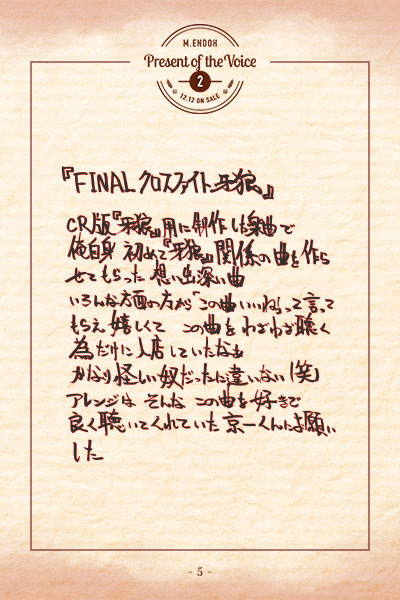 M.ENDOH
Present of the Voice
2
12.12 ON SALE
『FINAL クロスファイト 牙狼』
CR版『牙狼』用に制作した楽曲で
俺自身 初めて『牙狼』関係の曲を作ら
せてもらった 想い出深い曲
いろんな方面の方が「この曲いいね」って言って
もらえ嬉しくて この曲をわざわざ聴く
為だけに入店していたなぁ
かなり怪しい奴だったに違いない(笑)
アレンジは そんな この曲を好きで
良く聴いてくれていた 京一くんにお願い
した
- 5 -